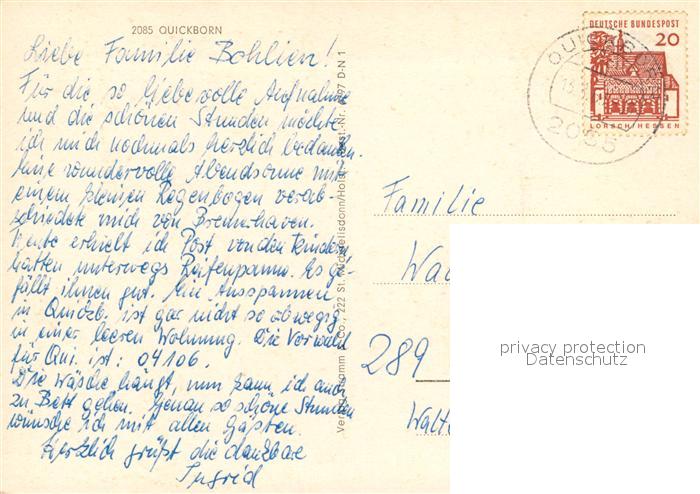 2085 QUICKBORN
Liebe Familie Bohlien!
Für die so liebevolle Aufnahme
und die schönen Stunden möchte
ich mich nochmals herzlich bedanken.
Eine wundervolle Abendsonne mit
einem kleinen Regenbogen verab-
schiedete mich von Bremerhaven.
Heute erhielt ich Post von den Kindern
hatten unterwegs Reifenpanne. Es ge-
fällt ihnen gut. Ein Ausspannen
in Quickb. ist gar nicht so abwegig
in einer leeren Wohnung. Die Vorwahl
für Qui. ist: 04106.
Die Wäsche hängt, nun kann ich auch
zu Bett gehen. Genau so schöne Stunden
wünsche ich mit allen Gästen.
Herzlich grüßt die dankbare
Ingrid
Verlag Schramm & Co., 222 St. Michaelisdonn/Holst. Best.-Nr. D-N 1
DEUTSCHE BUNDESPOST
20
LORSCH/HESSEN
QUICKBORN
2085
Familie
289
privacy protection
Datenschutz